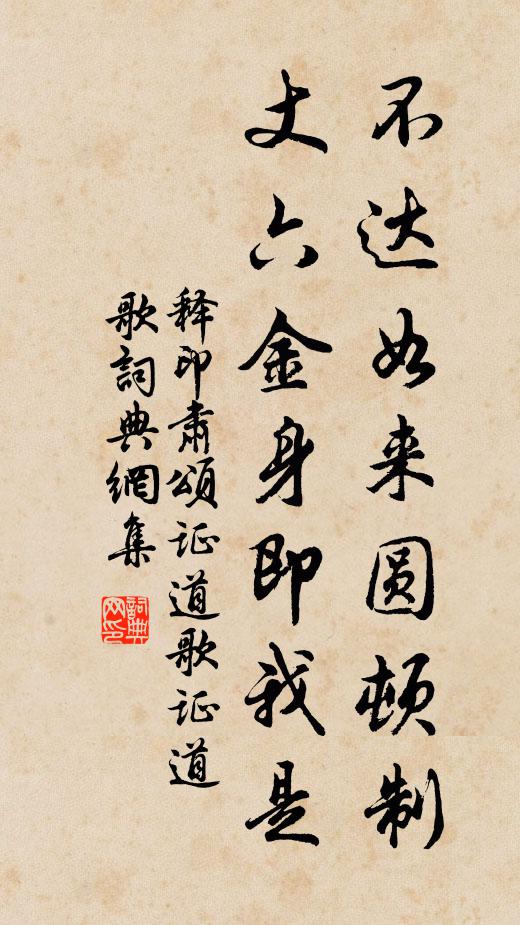 不达如来圆顿制
丈六金身即我是
释印肃颂证道歌证道
歌詞典網集
詞典网印